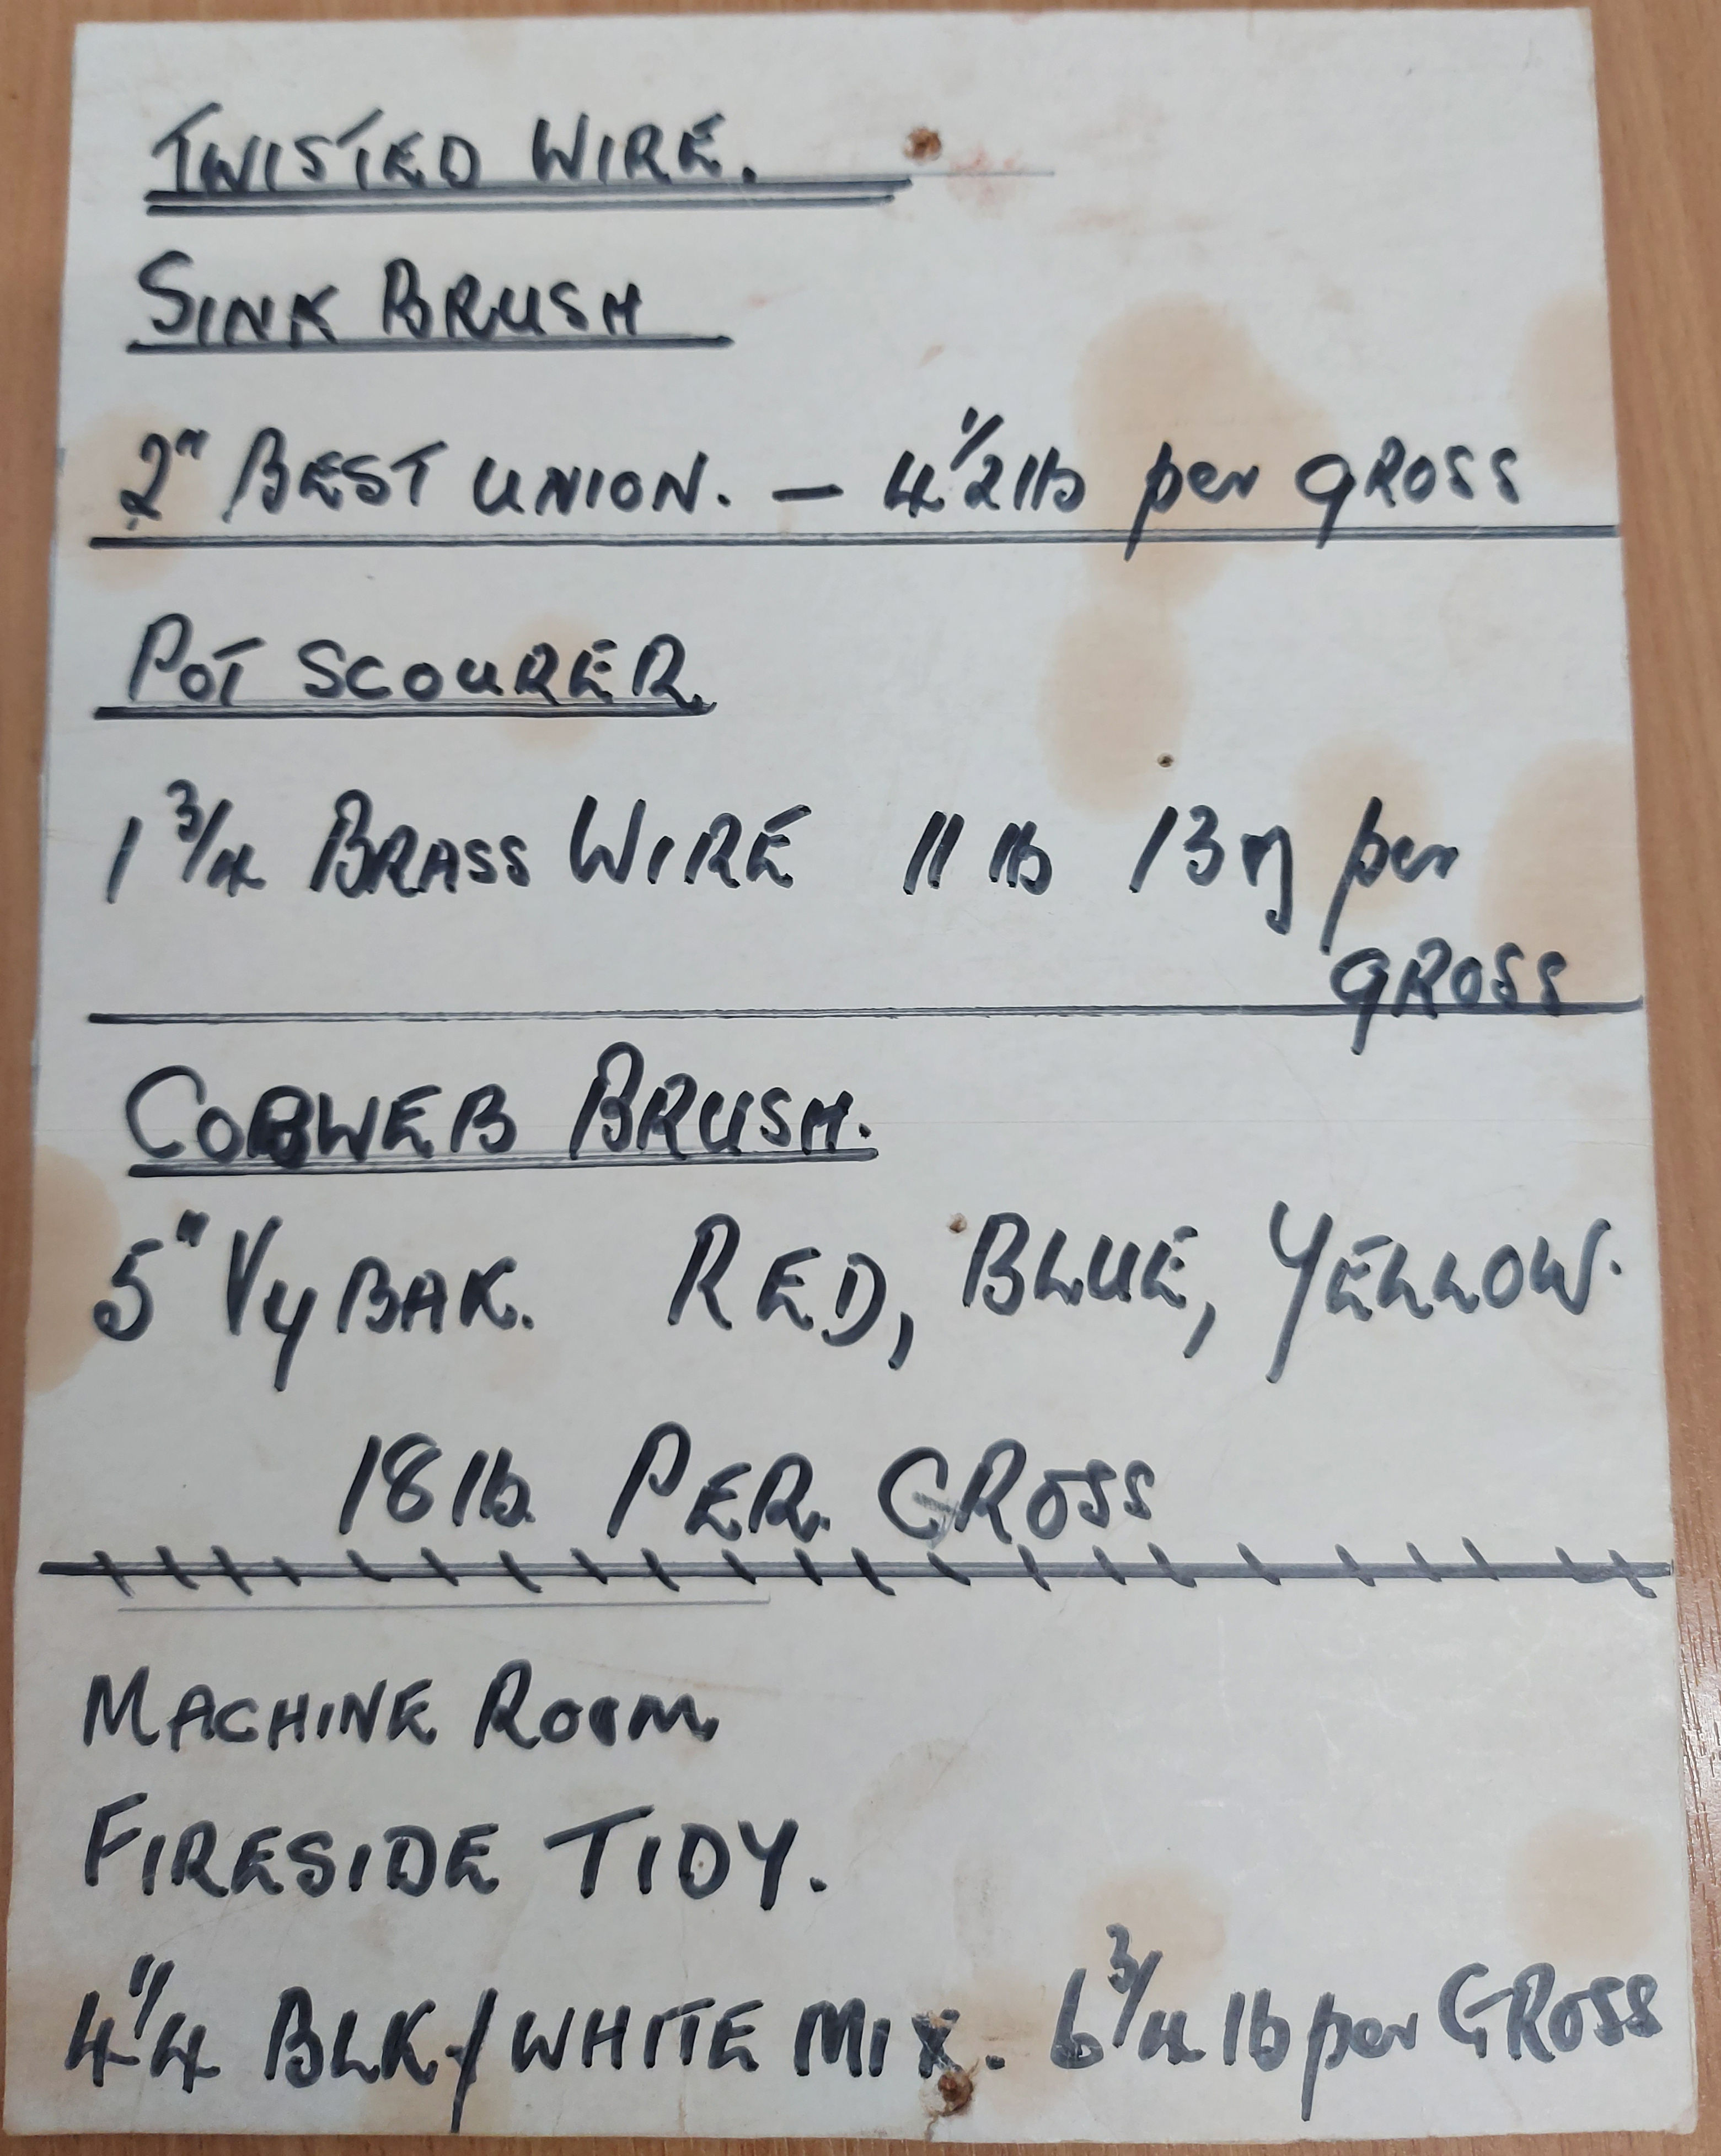 TWISTED WIRE.
SINK BRUSH
2" BEST UNION. — 4 1/2 lb per GROSS
POT SCOURER.
1 3/4 BRASS WIRE 11 lb 13 oz per
GROSS
COBWEB BRUSH.
5" VyBAK. RED, BLUE, YELLOW.
18 lb. PER. GROSS
MACHINE ROOM
FIRESIDE TIDY.
4 1/4 BLK/WHITE MIX. 6 3/4 lb per GROSS